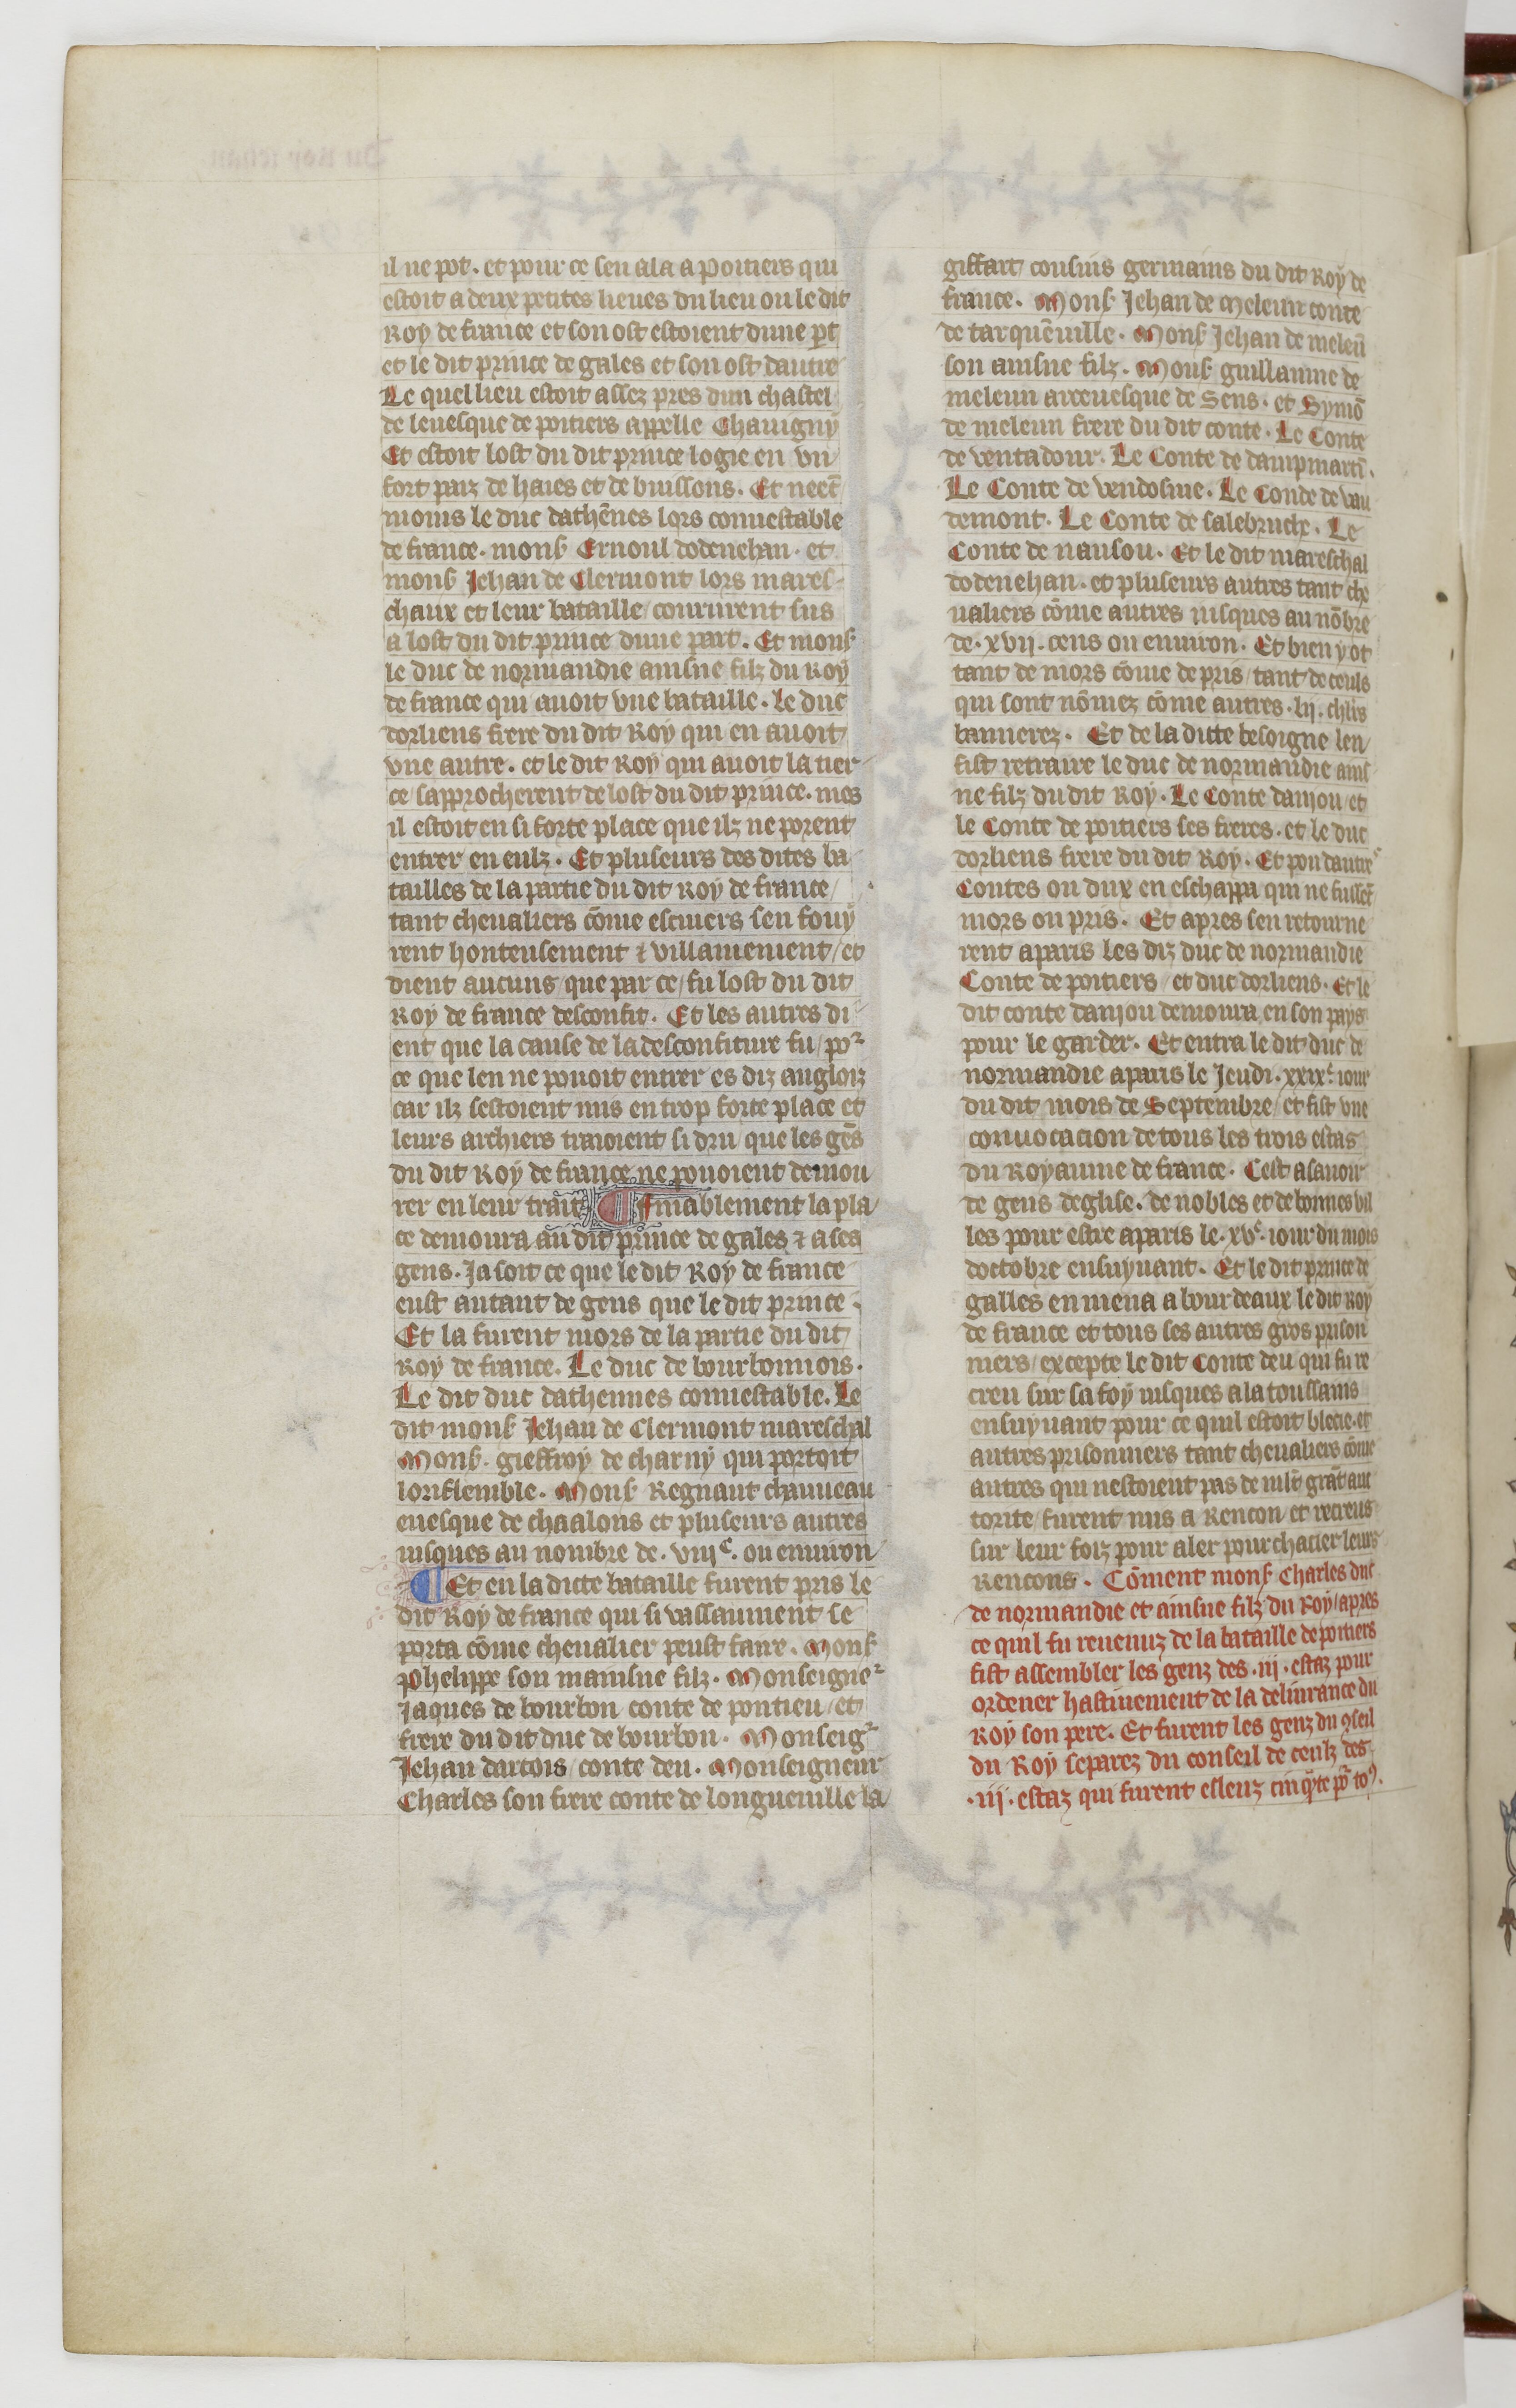 il ne pot. et pour ce sen ala a poitiers qui
estoit a deux petites lieues du lieu ou le dit
Roy de france et son ost estoient dune p̲t
et le dit prince de gales et son ost dautre
Le quel lieu estoit assez pres dun chastel
de leuesque de poitiers appelle Chauigny
Et estoit lost du dit prince logie en vn
fort paiz de haies et de buissons. Et neẽt
moins le duc dathẽnes lors connestable
de france. mons̾ Ernoul dodenehan. et
mons̾ Jehan de Clermont lors mares-
chaux et leur bataille coururent sus
a lost du dit prince dune part. Et mons̾
le duc de normandie ainsne filz du Roy
de france qui auoit vne bataille. le duc
dorliens frere du dit Roy qui en auoit
vne autre. et le dit Roy qui auoit la tier
ce/ sapprocherent de lost du dit prince. mes
il estoit en si forte place que ilz ne porent
entrer en eulz. Et pluseurs des dites ba
tailles de la partie du dit Roy de france/
tant cheualiers cõme escuiers sen fouy
rent honteusement ⁊ villainement/ et
dient aucuns/ que par ce/ fu lost du dit
Roy de france desconfit. Et les autres di
ent que la cause de la desconfiture fu/ poᷣ
ce que len ne pouoit entrer es diz angloiz
car ilz sestoient mis en trop forte place et
leurs archiers traioient si dru/ que les gẽs
du dit Roy de france ne pouoient demou
rer en leur trait ¶ finablement la pla
ce demoura au dit prince de gales ⁊ a ses
gens. Ja soit ce que le dit Roy de france
eust autant de gens que le dit prince.
Et la furent mors de la partie du dit
Roy de france. Le duc de bourbonnois.
Le dit duc dathennes connestable. Le
dit mons̾ Jehan de Clermont mareschal
Mons̾. gieffroy de charny qui portoit
loriflemble. Mons̾ Regnaut chauueau
euesque de chaalons et pluseurs autres
iusques au nombre de. viijᶜ. ou enuiron
¶ Et en la dicte bataille furent pris le
dit Roy de france qui si vassaument se
porta cõme cheualier peust faire. Mons̾
phelippe son mainsne filz. Monseigneᷣ
Jaques de bourbon conte de pontieu/ et
frere du dit duc de bourbon. Monseigᷣ
Jehan dartois/ conte deu. Monseigneur
Charles son frere conte de longueuille la
giffart cousins germains du dit Roy de
france. Mons̾ Jehan de Meleun conte
de tarquẽuille. Mons̾ Jehan de meleũ
son ainsne filz. Mons̾ guillaume de
meleun arceuesque de Sens. et Symõ
de meleun frere du dit conte. Le Conte
de ventadour. Le Conte de dampmartĩ.
Le Conte de vendosme. Le Conde de vau
demont. Le Conte de salebruche. Le
Conte de nansou. Et le dit mareschal
dodenehan. et pluseurs autres tant che
ualiers cõme autres iusques au nõbre
de. xvij. cens ou enuiron. Et bien y ot
tant de mors cõme de pris/ tant de ceuls
qui sont nõmez cõme autres. lij. chlr̃s
bannerez. Et de la dicte besoigne len
fist retraire le duc de normandie ains
ne filz du dit Roy. Le Conte danjou/ et
le Conte de poitiers ses freres. et le duc
dorliens frere du dit Roy. Et pou dautreˢ
Contes ou dux en eschappa qui ne fussẽt
mors ou pris. Et apres sen retourne
rent a paris les diz duc de normandie
Conte de poitiers/ et duc dorliens. Et le
dit conte danjou demoura en son pays
pour le garder. Et entra le dit duc de
normandie a paris le Jeudi. xxixᵉ. iour
du dit mois de Septembre/ et fist vne
conuocacion de tous les trois estas
du Royaume de france. Cest asauoir
de gens deglise. de nobles et de bonnes vil
les pour estre a paris le. xvᵉ. iour du mois
doctobre ensuyuant. Et le dit prince de
galles en mena a bourdeaux le dit Roy
de france et tous ses autres gros prison
niers/ excepte le dit Conte deu qui fu re
creu sur sa foy iusques a la toussains
ensuyuant pour ce quil estoit blecie. et
autres prisonniers tant cheualiers cõme
autres qui nestoient pas de mlt̃ grãt auc
torite/ furent mis a Rencon et recreus
sur leur foiz pour aler pourchacier leurs
Rencons. Cõment mons̾ Charles duc
de normandie et ainsne filz du Roy/ apres
ce quil fu reuenuz de la bataille de poitiers
fist assembler les genz des. iij. estaz pour
ordener hastiuement de la deliurance du
Roy son pere. Et furent les genz du ꝯseil
du Roy separez du conseil de ceulz des
.iij. estaz qui furent esleuz cinq̃te po᷑ toꝰ.